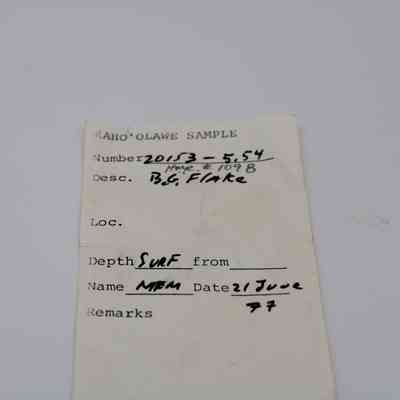 KAHO'OLAWE SAMPLE
Number 20153-5.54
# 1098
Desc. B.G. Flake
Loc.
Depth SURF from
Name MFM Date 21 June
77
Remarks